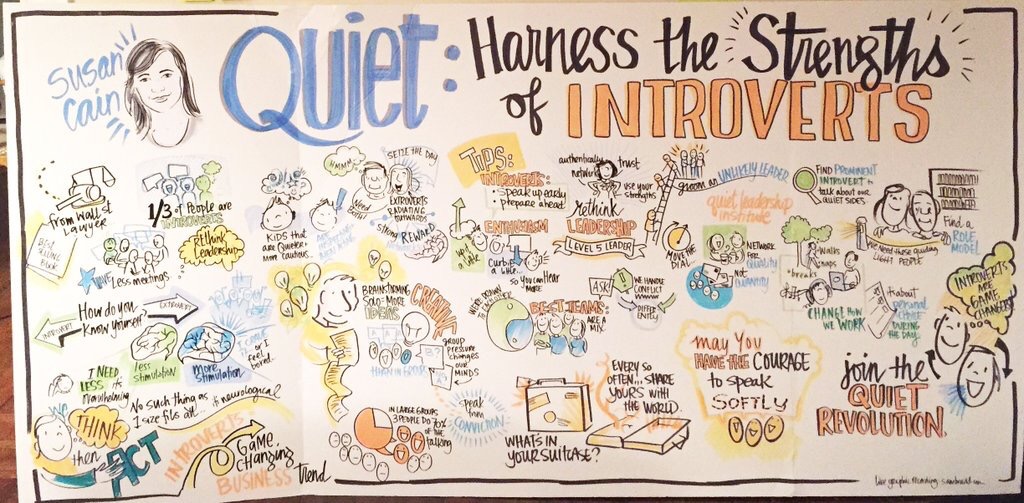 Susan
Cain
QUIET:
Harness the Strengths
of INTROVERTS
from Wall St
lawyer
1/3 of People are
INTROVERTS
BEST
SELLING
rethink
Leadership
HAVE Less meetings
How do you
Know yourself?
INTROVERT
EXTROVERT
I NEED
LESS its
overwhelming
less
stimulation
more
stimulation
I come
or I
feel
bored.
No such thing as
1 size fits all.
it's neurological
We
THINK
then
ACT
INTROVERTS
BUSINESS
GAME,
CHANGING
trend
HMMM
SEIZE THE DAY
KIDS that
are Quieter +
more cautious.
EXTROVERTS
RADIATING
OUTWARDS
strong
REWARD
BRAINSTORMING
SOLO = MORE
IDEAS
CREATIVE
THAN IN GROUP
group
pressure
changes
OUR
MINDS
IN LARGE GROUPS
3 PEOPLE DO 70%
OF THE
talking
speak
from
CONVICTION
TIPS:
INTROVERTS:
• speak up early
• prepare ahead
ENTHUSIASM
Curb it
a little...
so you can hear
more
authentically
network
trust
use your
strengths
rethink
LEADERSHIP
LEVEL 5 LEADER
groom an UNLIKELY LEADER
quiet leadership
institute
MOVE THE
DIAL
NETWORK
FOR
QUALITY
NOT
QUANTITY
BEST TEAMS:
ARE A
MIX
ASK!
WE HANDLE
CONFLICT
DIFFERENTLY
WHATS IN
YOUR SUITCASE?
EVERY SO
OFTEN... SHARE
YOURS WITH
THE WORLD.
FIND PROMINENT
INTROVERT to
talk about our
QUIET SIDES
We need these guiding
LIGHT PEOPLE
Find a
ROLE
MODEL
• walks
• breaks
CHANGE HOW
WE WORK
personal
DURING
THE DAY
INTROVERTS
ARE
GAME
CHANGERS
may You
HAVE THE COURAGE
to speak
SOFTLY
join the
QUIET
REVOLUTION.